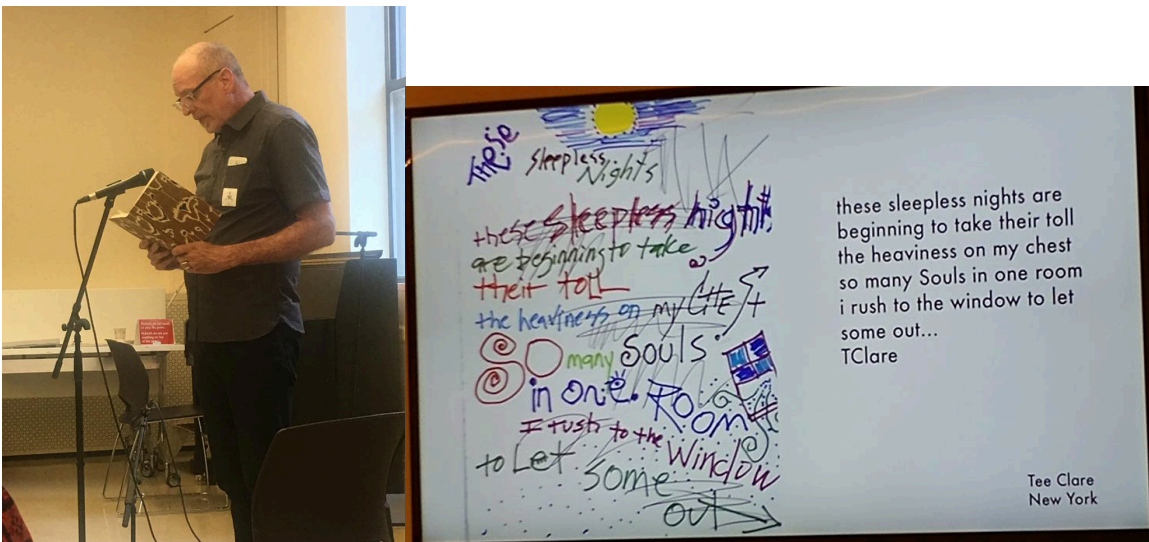 These
Sleepless
Nights
these sleepless nights
are beginning to take
their toll
the heaviness on my CHEST
SO many Souls
in one. ROOM
I rush to the
to Let Some Window
out
these sleepless nights are
beginning to take their toll
the heaviness on my chest
so many Souls in one room
i rush to the window to let
some out...
TClare
Tee Clare
New York